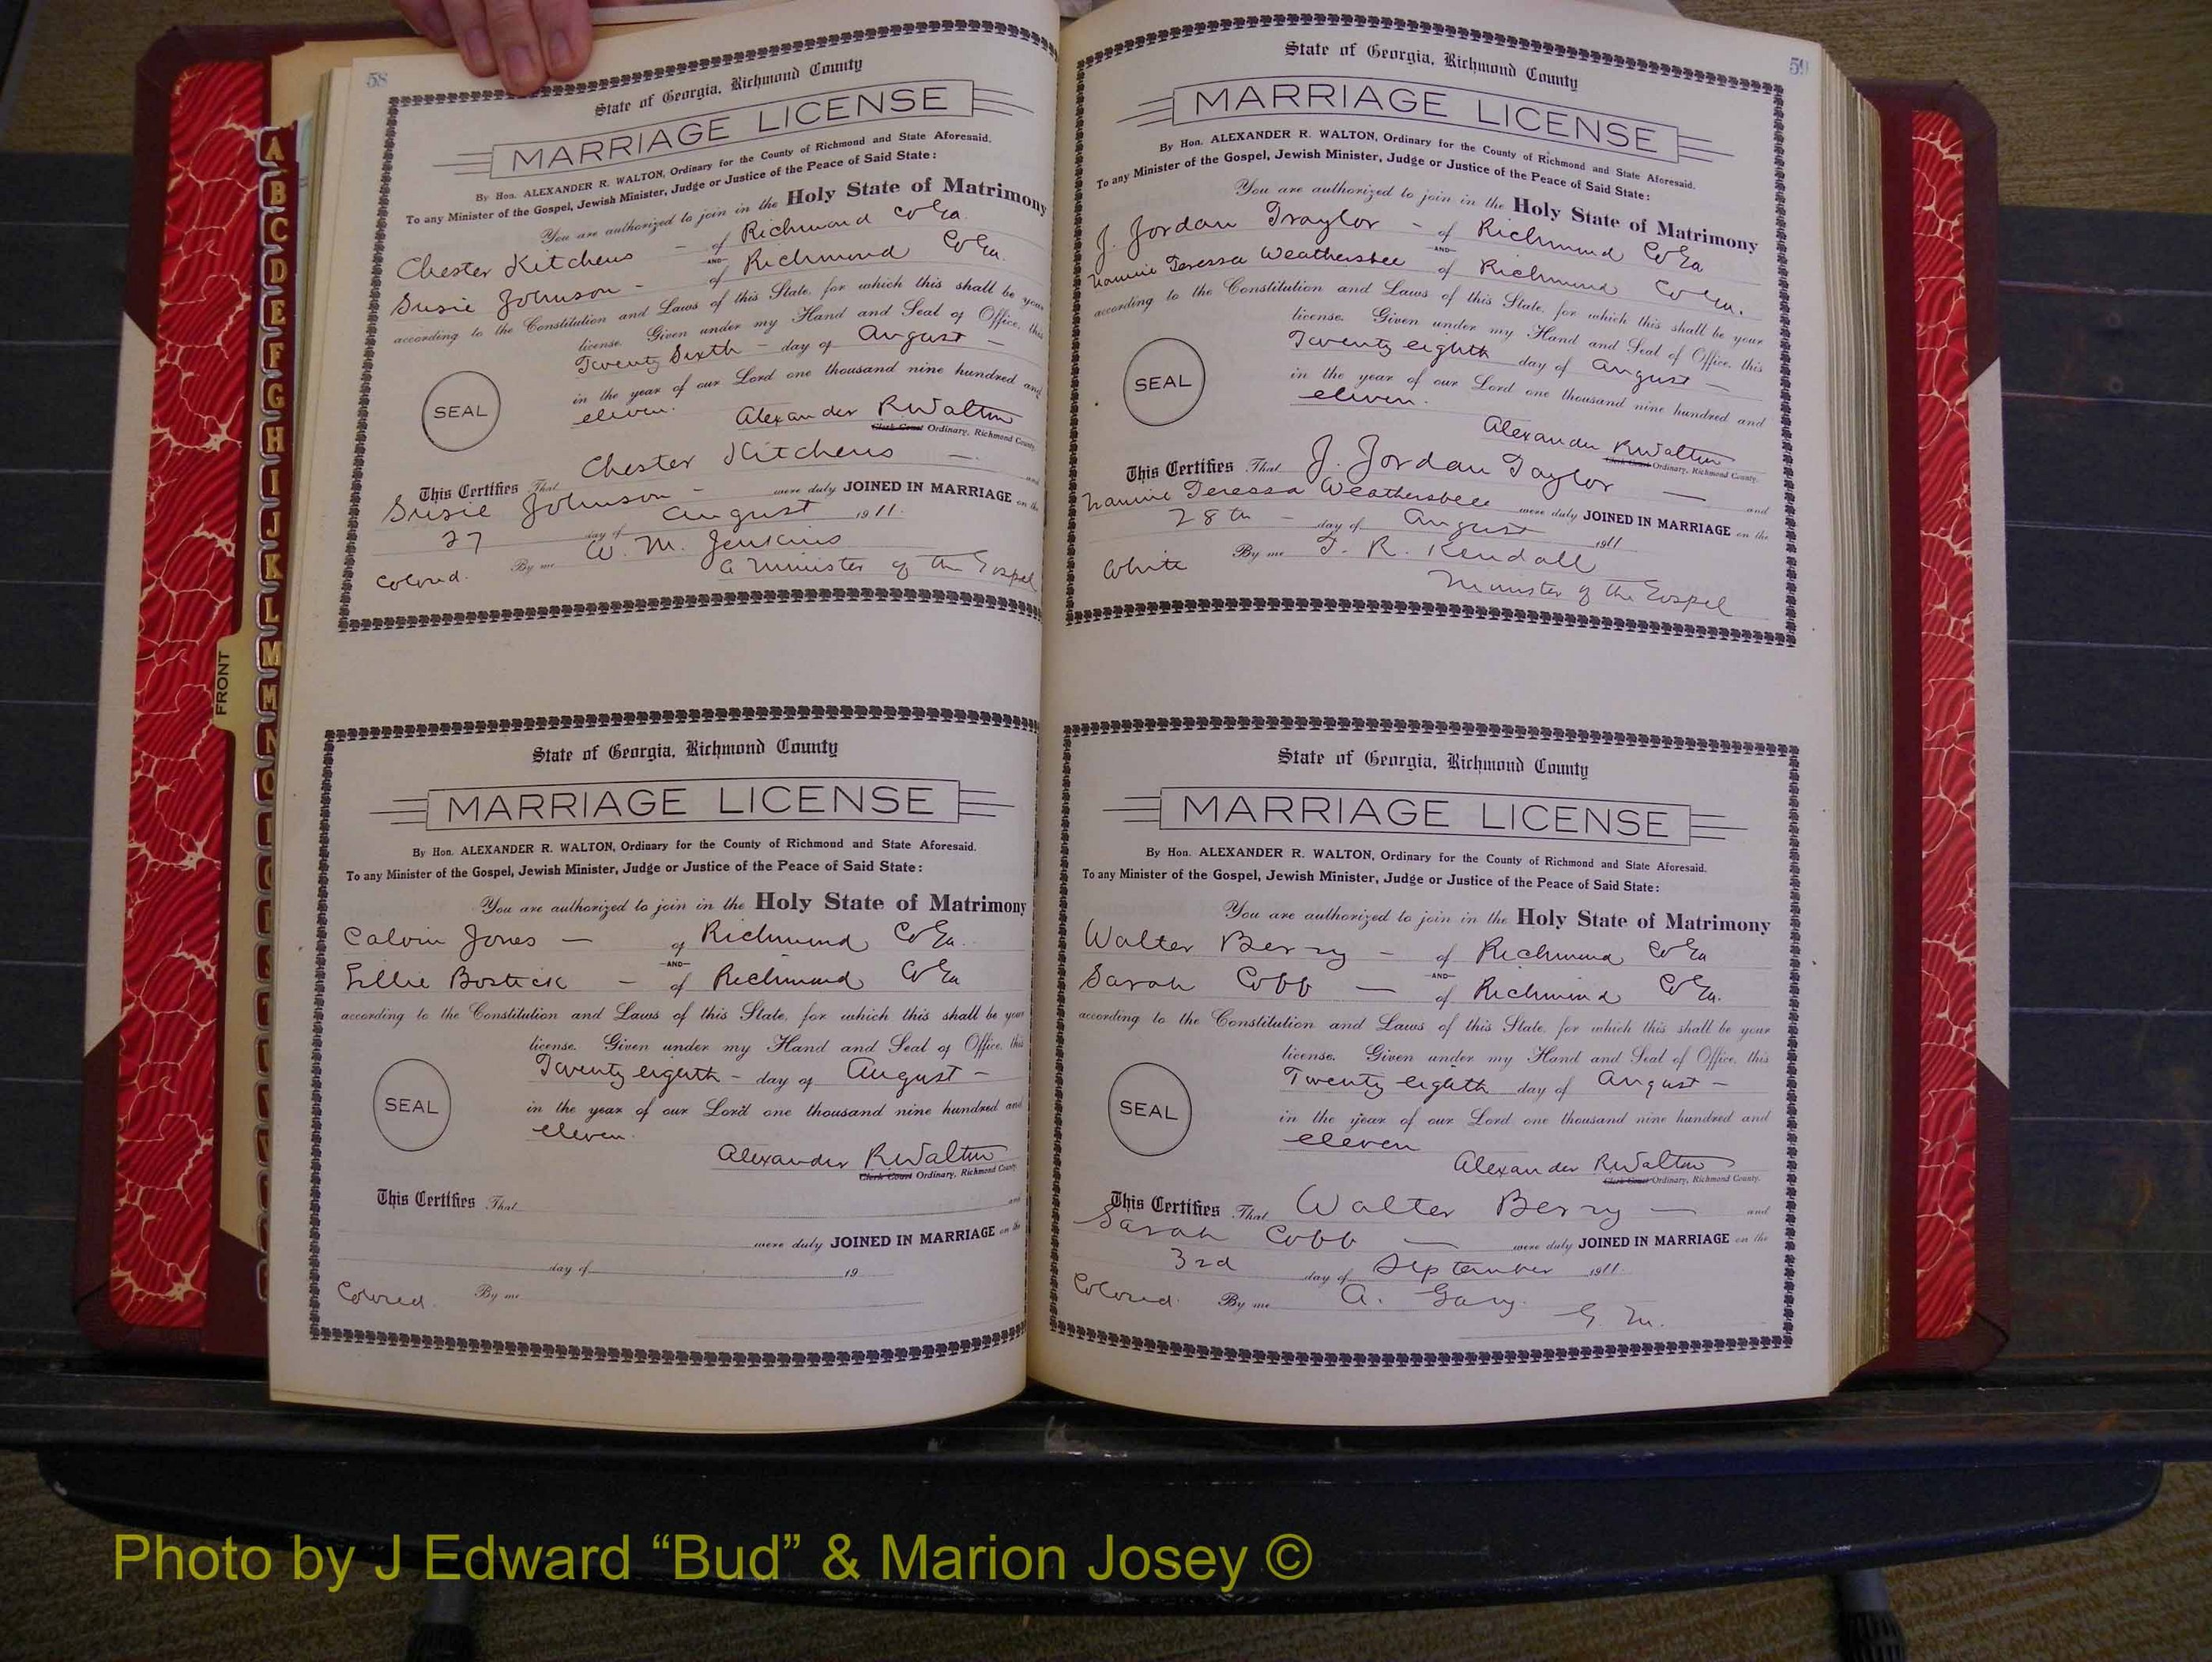 58
State of Georgia, Richmond County
MARRIAGE LICENSE
By Hon. ALEXANDER R. WALTON, Ordinary for the County of Richmond and State Aforesaid.
To any Minister of the Gospel, Jewish Minister, Judge or Justice of the Peace of Said State:
You are authorized to join in the Holy State of Matrimony
Chester Kitchens - of Richmond Co Ga.
AND
Susie Johnson - of Richmond Co Ga.
according to the Constitution and Laws of this State, for which this shall be your
license. Given under my Hand and Seal of Office, this
Twenty Sixth - day of August -
in the year of our Lord one thousand nine hundred and
SEAL
eleven.
Alexander R Walton
Clerk Court Ordinary, Richmond County
This Certifies That Chester Kitchens - and
Susie Johnson - were duly JOINED IN MARRIAGE on the
27 day of August 1911.
Colored. By me W. M. Jenkins
a Minister of the Gospel
State of Georgia, Richmond County
MARRIAGE LICENSE
By Hon. ALEXANDER R. WALTON, Ordinary for the County of Richmond and State Aforesaid.
To any Minister of the Gospel, Jewish Minister, Judge or Justice of the Peace of Said State:
You are authorized to join in the Holy State of Matrimony
Calvin Jones - of Richmond Co Ga.
AND
Lillie Bostick - of Richmond Co Ga
according to the Constitution and Laws of this State, for which this shall be your
license. Given under my Hand and Seal of Office, this
Twenty eighth - day of August -
SEAL
in the year of our Lord one thousand nine hundred and
eleven.
Alexander R Walton
Clerk Court Ordinary, Richmond County
This Certifies That and
were duly JOINED IN MARRIAGE on the
day of 19
Colored. By me
59
State of Georgia, Richmond County
MARRIAGE LICENSE
By Hon. ALEXANDER R. WALTON, Ordinary for the County of Richmond and State Aforesaid.
To any Minister of the Gospel, Jewish Minister, Judge or Justice of the Peace of Said State:
You are authorized to join in the Holy State of Matrimony
J. Jordan Traylor - of Richmond Co Ga
AND
Nannie Teressa Weathersbee of Richmond Co Ga.
according to the Constitution and Laws of this State, for which this shall be your
license. Given under my Hand and Seal of Office, this
Twenty eighth day of August -
SEAL
in the year of our Lord one thousand nine hundred and
eleven.
Alexander R Walton
Clerk Court Ordinary, Richmond County.
This Certifies That J. Jordan Taylor - and
Nannie Teressa Weathersbee were duly JOINED IN MARRIAGE on the
28th - day of August 1911
White By me T. R. Kendall
Minister of the Gospel
State of Georgia, Richmond County
MARRIAGE LICENSE
By Hon. ALEXANDER R. WALTON, Ordinary for the County of Richmond and State Aforesaid.
To any Minister of the Gospel, Jewish Minister, Judge or Justice of the Peace of Said State:
You are authorized to join in the Holy State of Matrimony
Walter Berry - of Richmond Co Ga
AND
Sarah Cobb - of Richmond Co Ga.
according to the Constitution and Laws of this State, for which this shall be your
license. Given under my Hand and Seal of Office, this
Twenty eighth day of August -
SEAL
in the year of our Lord one thousand nine hundred and
eleven
Alexander R Walton
Clerk Court Ordinary, Richmond County.
This Certifies That Walter Berry - and
Sarah Cobb - were duly JOINED IN MARRIAGE on the
3rd day of September 1911.
Colored. By me A. Gary.
G. M.
A
B
C
D
E
F
G
H
I
J
K
L
M
M
N
O
FRONT
Photo by J Edward “Bud” & Marion Josey ©